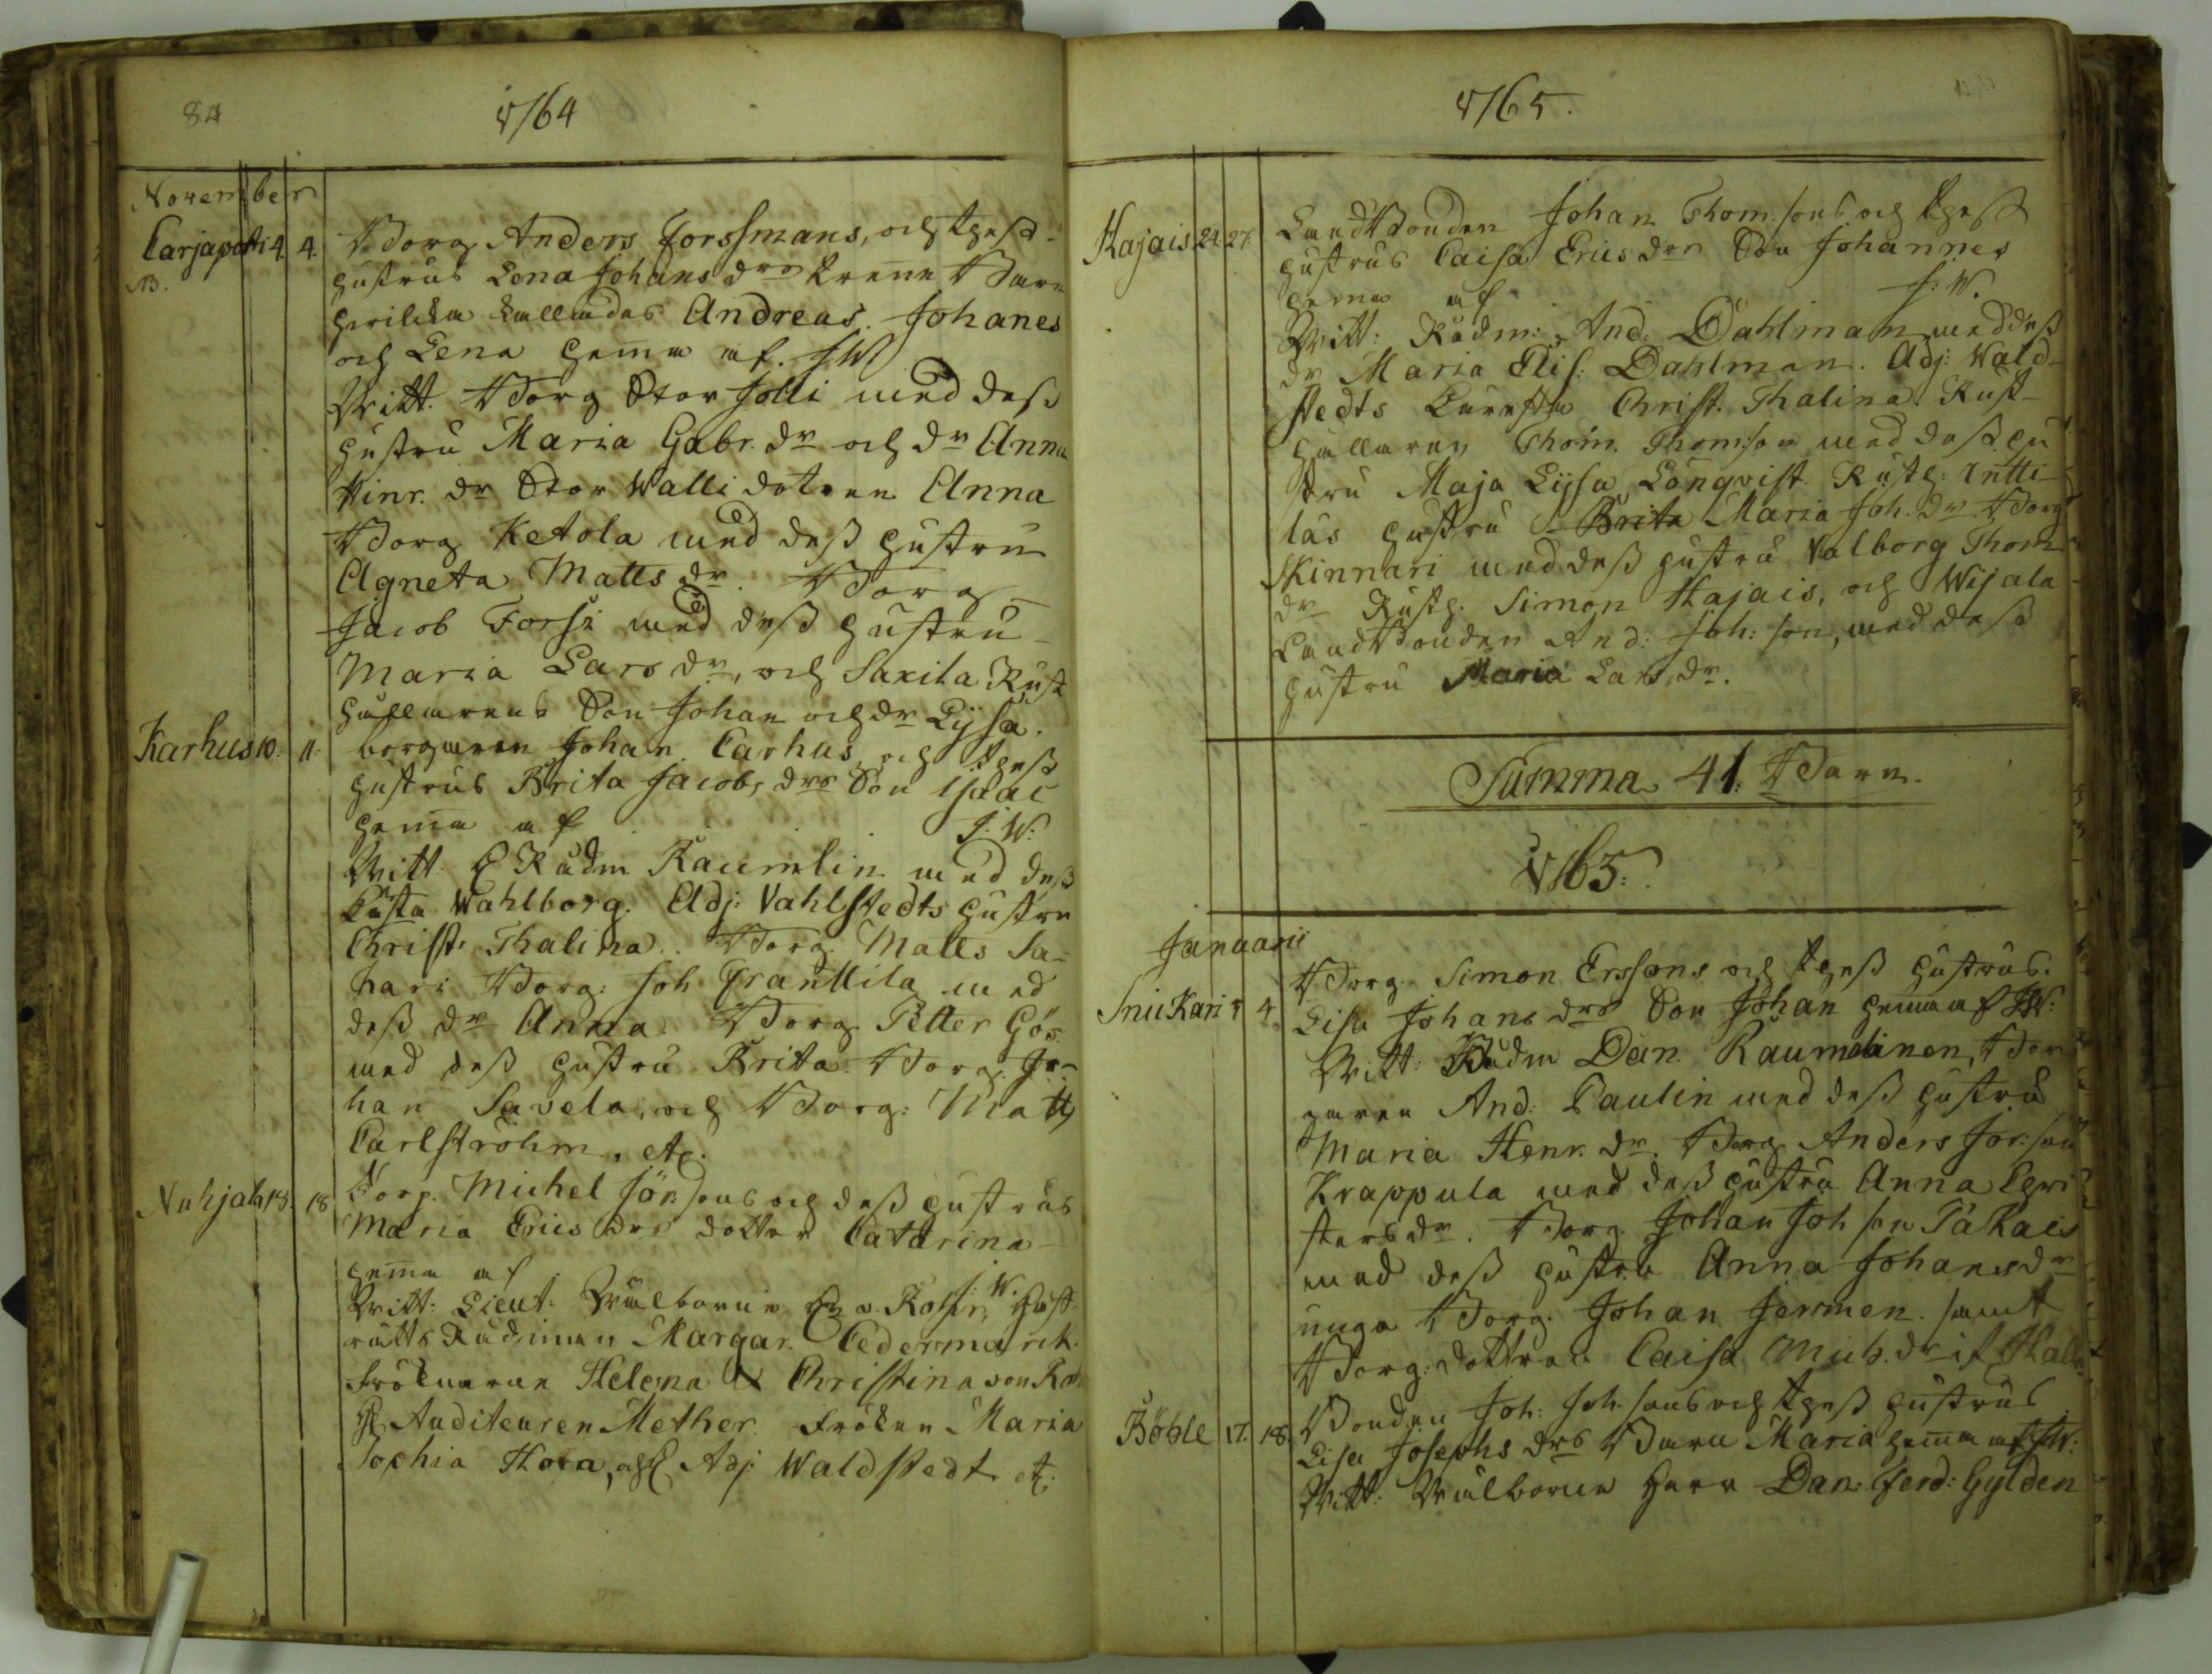 84
1764
November
Carjapelto 4. 4.
NB.
Borg. Anders Forssmans, och thess
hustrus Lena Johans drs trenne Barn
hwilcka kallades Andreas. Johanes
och Lena hema af. J W
Witt. Borg Stor Jolli med dess
hustru Maria Gabr. dr och dr Anna
Hinr. dr Stor Walli dotren Anna
Borg Ketola med dess hustru
Agneta Matts dr. Borg
Jacob Forsi med dess hustru
Maria Lars dr, och Saxila Rust
hållarens Son Johan och dr Lijsa.
Karhus 10. 11.
borgaren Johan Carhus, och thess
hustrus Brita Jacobs drs Son Isaac
hema af J. W:
Witt: H Rådm Raumelin med dess
Kusta Wahlborg. Adj: Vahlstedts hustru
Christ. Thalina. Borg Matts Sa-
hari Borg: Joh Franttila med
dess dr Anna. Borg. Petter Gös
med dess hustru Brita. Borg. Jo-
han Savela, och Borg: Matts
Carlström, etc.
Nuhjala 18. 18
Borg. Michel Jönsons och dess hustrus
Maria Erics drs dotter Catarina
hema af J. W.
Witt: Lieut: Wälborne H v. Rohr, Håf-
rätts Rådinnan Margar. Cedermarck.
Fröknarne Helena & Christina von Roh
H Auditeuren Mether. Fröken Maria
Sophia Horn, och Adj: Waldstedt etc:
1765.
Kajais 21. 27.
LandtBonden Johan Thom.sons och thess
hustrus Caisa Erics drs Son Johannes
hema af J: W.
Witt: Rådm: And: Dahlman med dess
dr Maria Elis: Dahlman. Adj: Wald-
stedts Kiersta Christ. Thalina. Rust-
hållaren Thom. Thomson med dess hu-
stru Maja Lijsa Lönqvist. Rusth: Intti-
las hustru Brita Maria Joh. dr Borg
Skinnari med dess hustru Valborg Thom
dr Rusth. Simon Kajais, och Wijala
LandtBonden And: Joh: son, med dess
hustru Maria Lars dr.
Summa 41. Barn.
1765:
Januarii
Borg. Simon Erssons och thess hustrus
Sniikari 4.
Lisa Johans drs Son Johan hema af JW:
Witt: Rådm Dan. Raumelinen, Bor
garen And: Paulin med dess hustru
Maria Henr. dr. Borg Anders Jör:son
Krappula med dess hustru Anna Chri
sters dr. Borg. Johan Joh son Takais
med dess hustru Anna Johans dr
unga Borg. Johan Jermen. samt
Borg: dottren Caisa Mich. dr if
Böhle 17. 18.
Bonden Joh: Joh. sons och thess hustrus
Lisa Josephs drs Barn Maria hema af JW:
Witt: Wälborne Herr Dan: Ferd: Gylden